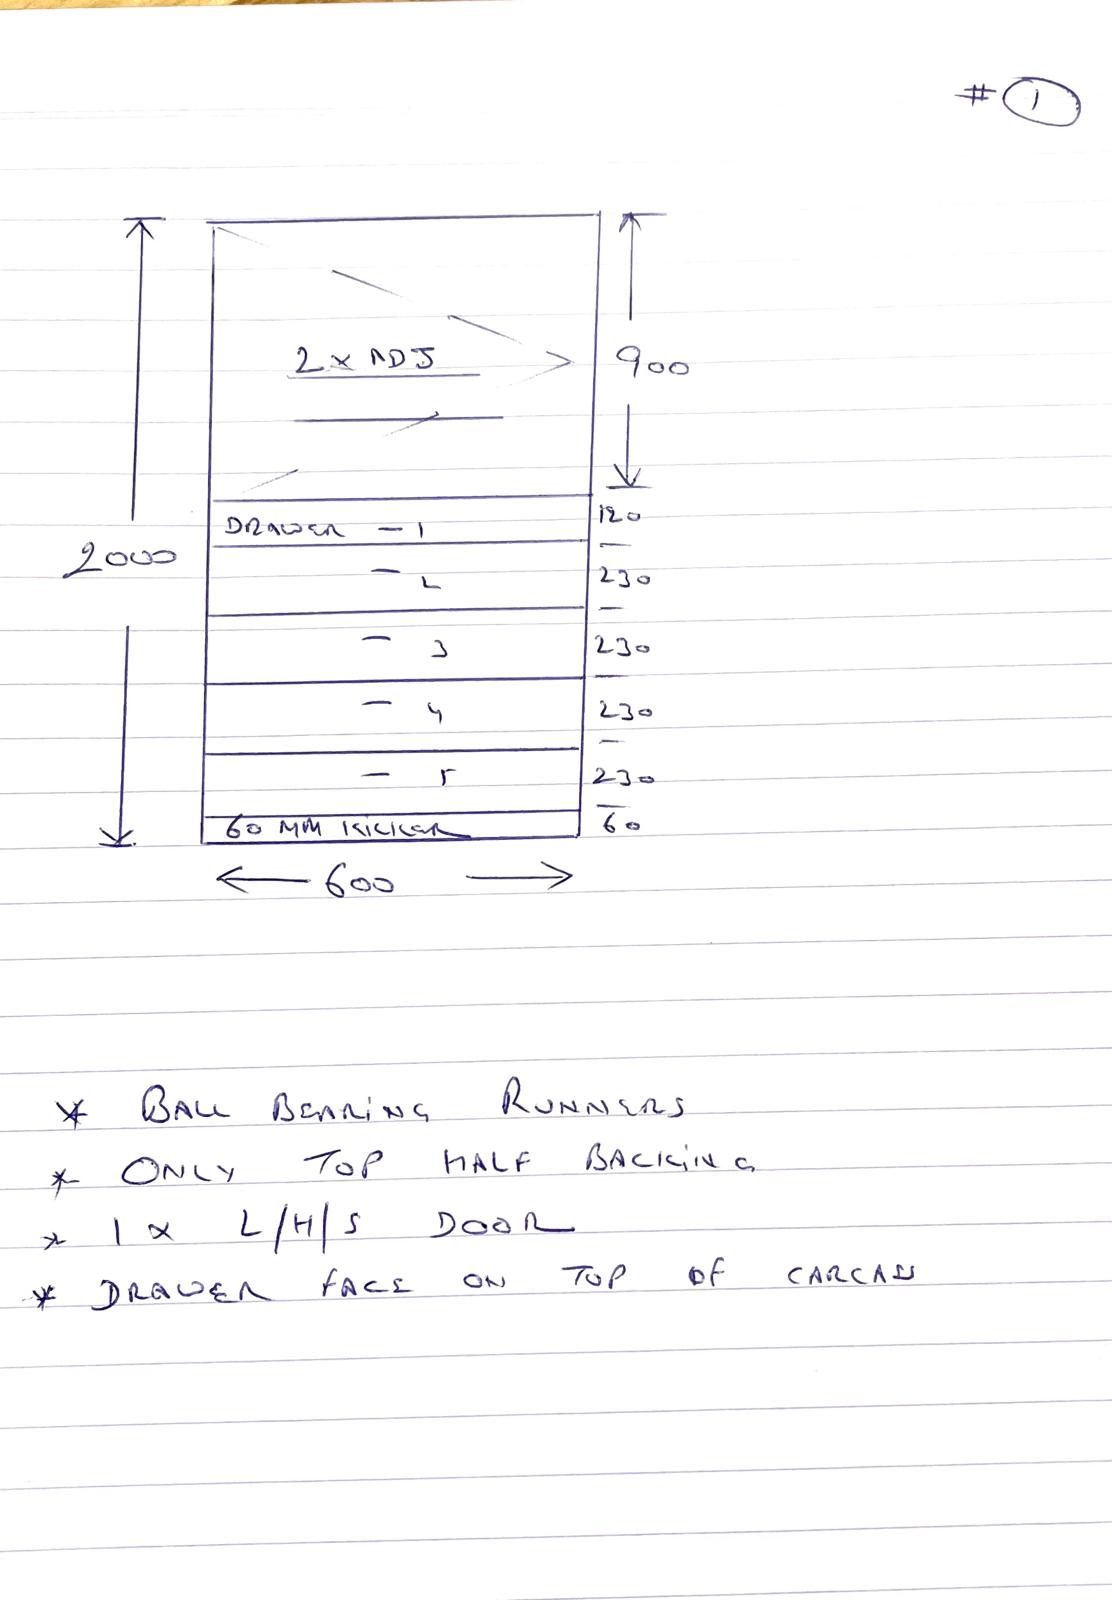 # 1
2 x ADJ
900
DRAWER - 1
120
2000
- 2
230
- 3
230
- 4
230
- 5
230
60 MM KICKER
60
600
* BALL BEARING RUNNERS
* ONLY TOP HALF BACKING
* 1 x L/H/S DOOR
* DRAWER FACE ON TOP OF CARCASS